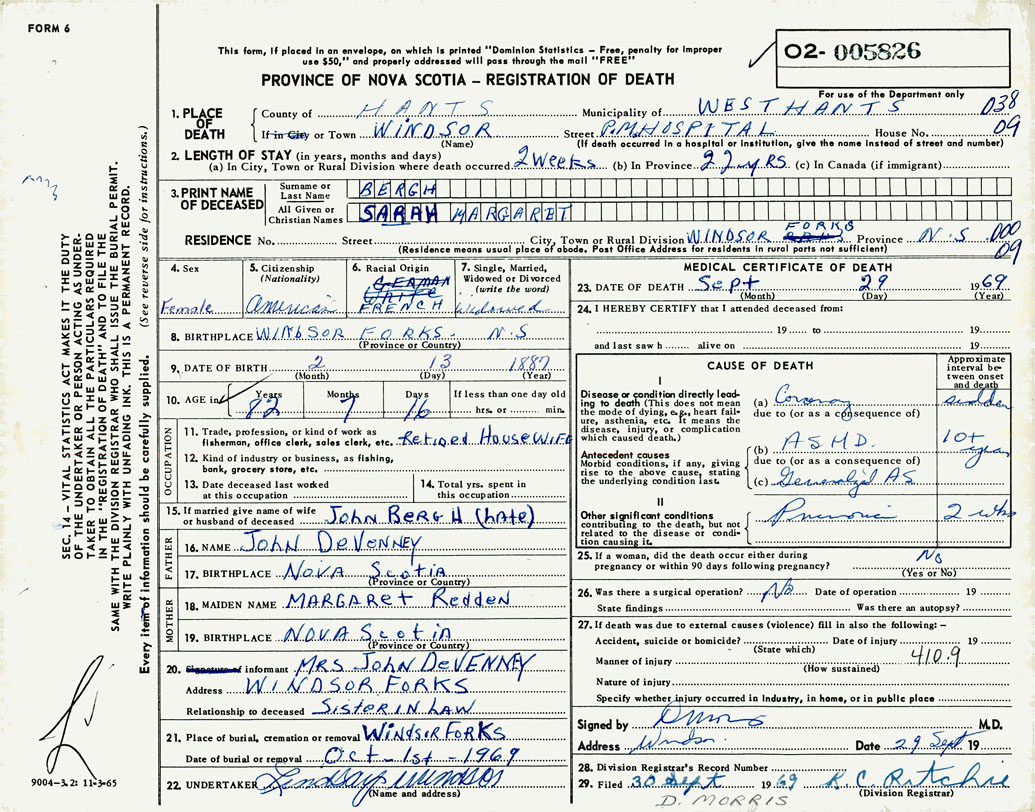 FORM 6
This form, if placed in an envelope, on which is printed "Dominion Statistics – Free, penalty for improper
use $50," and properly addressed will pass through the mail "FREE"
PROVINCE OF NOVA SCOTIA – REGISTRATION OF DEATH
02- 005826
For use of the Department only
038
09
1. PLACE OF DEATH
County of HANTS Municipality of WEST HANTS
If in City or Town WINDSOR Street P.M. HOSPITAL House No.
(Name) (If death occurred in a hospital or institution, give the name instead of street and number)
2. LENGTH OF STAY (in years, months and days)
(a) In City, Town or Rural Division where death occurred 2 Weeks (b) In Province 22 yRS. (c) In Canada (if immigrant)
3. PRINT NAME OF DECEASED
Surname or Last Name BERGH
All Given or Christian Names SARAH MARGARET
RESIDENCE No. Street City, Town or Rural Division WINDSOR FORKS Province N.S 000
09
(Residence means usual place of abode. Post Office Address for residents in rural parts not sufficient)
4. Sex
Female
5. Citizenship
(Nationality)
American
6. Racial Origin
GERMAN
WHITE
FRENCH
7. Single, Married,
Widowed or Divorced
(write the word)
Widowed
8. BIRTHPLACE WINDSOR FORKS - N.S
(Province or Country)
9. DATE OF BIRTH 2 13 1887
(Month) (Day) (Year)
10. AGE in Years Months Days If less than one day old
82 7 16 hrs. or min.
OCCUPATION
11. Trade, profession, or kind of work as
fisherman, office clerk, sales clerk, etc. Retired HouseWife
12. Kind of industry or business, as fishing,
bank, grocery store, etc.
13. Date deceased last worked
at this occupation
14. Total yrs. spent in
this occupation
15. If married give name of wife
or husband of deceased JOHN BERGH (Late)
FATHER
16. NAME JOHN DeVENNEY
17. BIRTHPLACE NOVA Scotia
(Province or Country)
MOTHER
18. MAIDEN NAME MARGARet Redden
19. BIRTHPLACE NOVA Scotia
(Province or Country)
20. Signature of informant MRS JOHN DeVENNEY
Address WINDSOR FORKS
Relationship to deceased SISTER IN LAW
21. Place of burial, cremation or removal WINDSOR FORKS
Date of burial or removal Oct - 1st - 1969
22. UNDERTAKER Lindsay Windsor
(Name and address)
MEDICAL CERTIFICATE OF DEATH
23. DATE OF DEATH Sept 29 1969
(Month) (Day) (Year)
24. I HEREBY CERTIFY that I attended deceased from:
19 to 19
and last saw h alive on 19
CAUSE OF DEATH
Approximate
interval be-
tween onset
and death
I
Disease or condition directly lead-
ing to death (This does not mean
the mode of dying, e.g., heart fail-
ure, asthenia, etc. It means the
disease, injury, or complication
which caused death.)
(a) Coronary sudden
due to (or as a consequence of)
Antecedent causes
Morbid conditions, if any, giving
rise to the above cause, stating
the underlying condition last.
(b) ASHD. 10+ years
due to (or as a consequence of)
(c) Generalized AS
II
Other significant conditions
contributing to the death, but not
related to the disease or condi-
tion causing it.
Pneumonia 2 wks
25. If a woman, did the death occur either during
pregnancy or within 90 days following pregnancy? No
(Yes or No)
26. Was there a surgical operation? No Date of operation 19
State findings Was there an autopsy?
27. If death was due to external causes (violence) fill in also the following: –
Accident, suicide or homicide? Date of injury 19
(State which)
410.9
Manner of injury
(How sustained)
Nature of injury
Specify whether injury occurred in industry, in home, or in public place
Signed by M.D.
Address Windsor Date 29 Sept 19
28. Division Registrar's Record Number
29. Filed 30 Sept 1969 R. C. Ritchie
(Division Registrar)
D. MORRIS
SEC. 14 – VITAL STATISTICS ACT MAKES IT THE DUTY
OF THE UNDERTAKER OR PERSON ACTING AS UNDER-
TAKER TO OBTAIN ALL THE PARTICULARS REQUIRED
IN THE "REGISTRATION OF DEATH" AND TO FILE THE
SAME WITH THE DIVISION REGISTRAR WHO SHALL ISSUE THE BURIAL PERMIT.
WRITE PLAINLY WITH UNFADING INK. THIS IS A PERMANENT RECORD.
Every item of information should be carefully supplied. (See reverse side for instructions.)
9004-3.2: 11-3-65